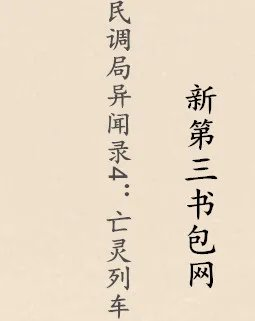 新第三书包网
民调局异闻录4：亡灵列车